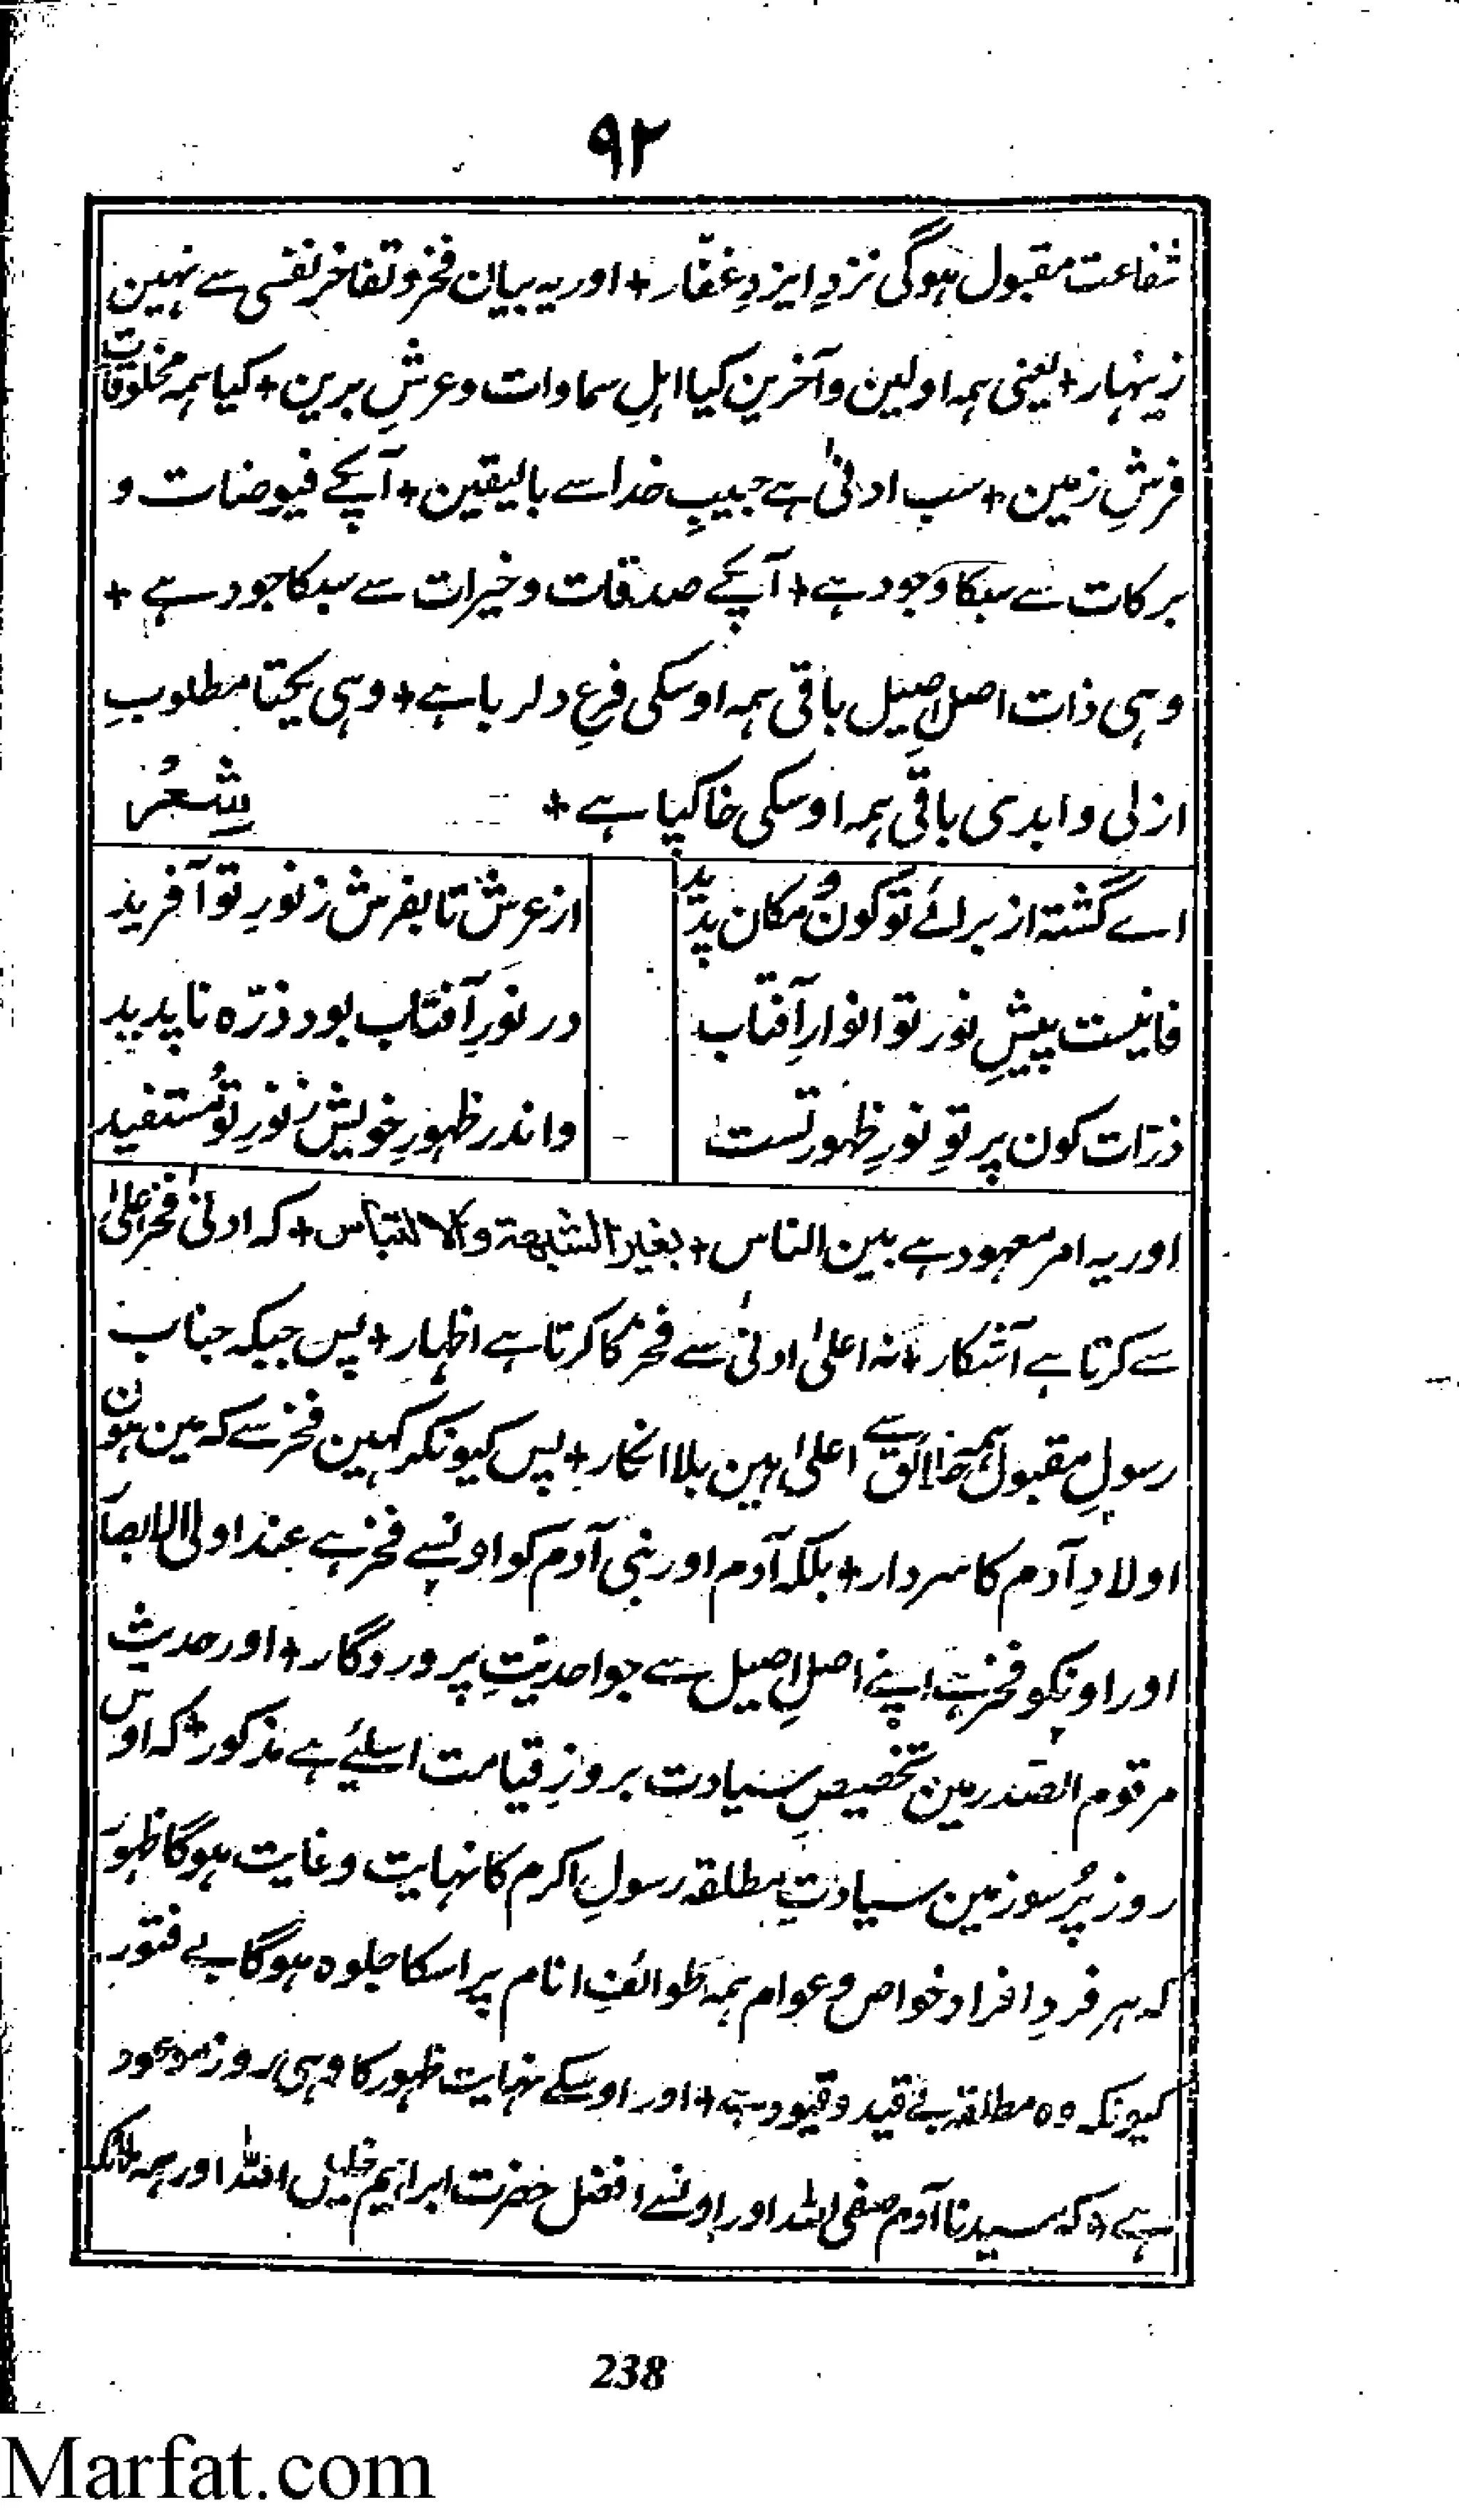 ۹۲
شفاعت مقبول ہوگی نزدِ ایزدِ غفّار + اور یہ بیان فخر و تفاخر نفسی سے نہین
زینہار + یعنی ہمہ اولین و آخرین کیا اہلِ سماوات و عرشِ برین + کیا ہمہ مخلوقات
فرشِ زمین + سب ادنیٰ ہے حبیبِ خدا سے بالیقین + آپکے فیوضات و
برکات سے سبکا وجود ہے + آپکے صدقات و خیرات سے سبکا جود ہے +
وہی ذات اصلِ اصیل باقی ہمہ اوسکی فرعِ دلربا ہے + وہی یکتا مطلوبِ
ازلی و ابدی باقی ہمہ اوسکی خاکپا ہے +
شعر
اے گشتہ از برائے تو کون و مکان پدید
از عرش تا بفرش ز نورِ تو آفرید
فانیست پیشِ نور تو انوارِ آفتاب
در نورِ آفتاب بود ذرّہ ناپدید
ذرّات کون پرتوِ نورِ ظہور تست
واندر ظہورِ خویش ز نورِ تو مستفید
اور یہ امر معہود ہے بین الناس + بغیر الشبھۃ والالتباس + کہ ادنیٰ فخر اعلیٰ
سے کرتا ہے آشکار + نہ اعلیٰ ادنیٰ سے فخر کا کرتا ہے اظہار + پس جبکہ جناب
رسولِ مقبول ہمہ خلائق سے اعلیٰ ہین بلا انکار + پس کیونکر کہین فخر سے کہ مین ہون
اولادِ آدم کا سردار + بلکہ آدم اور بنی آدم کو اونسے فخر ہے عند اولی الابصار
اور اونکو فخر ہے اپنے اصلِ اصیل سے جو احدیتِ پروردگار + اور حدیث
مرقوم الصدر مین تخصیصِ سیادت بروزِ قیامت اسلیئے ہے مذکور + کہ اوس
روز پُرسوز مین سیادتِ مطلقہ رسولِ اکرم کا نہایت و غایت ہوگا ظہور
کہ ہر فردِ افراد خواص و عوام ہمہ طوائفِ انام پر اسکا جلوہ ہوگا بے فتور
کیونکہ وہ مطلقہ بے قید و قیود ہے + اور اوسکے نہایت ظہور کا وہی روز موعود
ہے + کہ سیدنا آدم صفی اللہ اور اونسے افضل حضرت ابراہیم خلیل اللہ اور ہمہ ملائکہ
238
Marfat.com